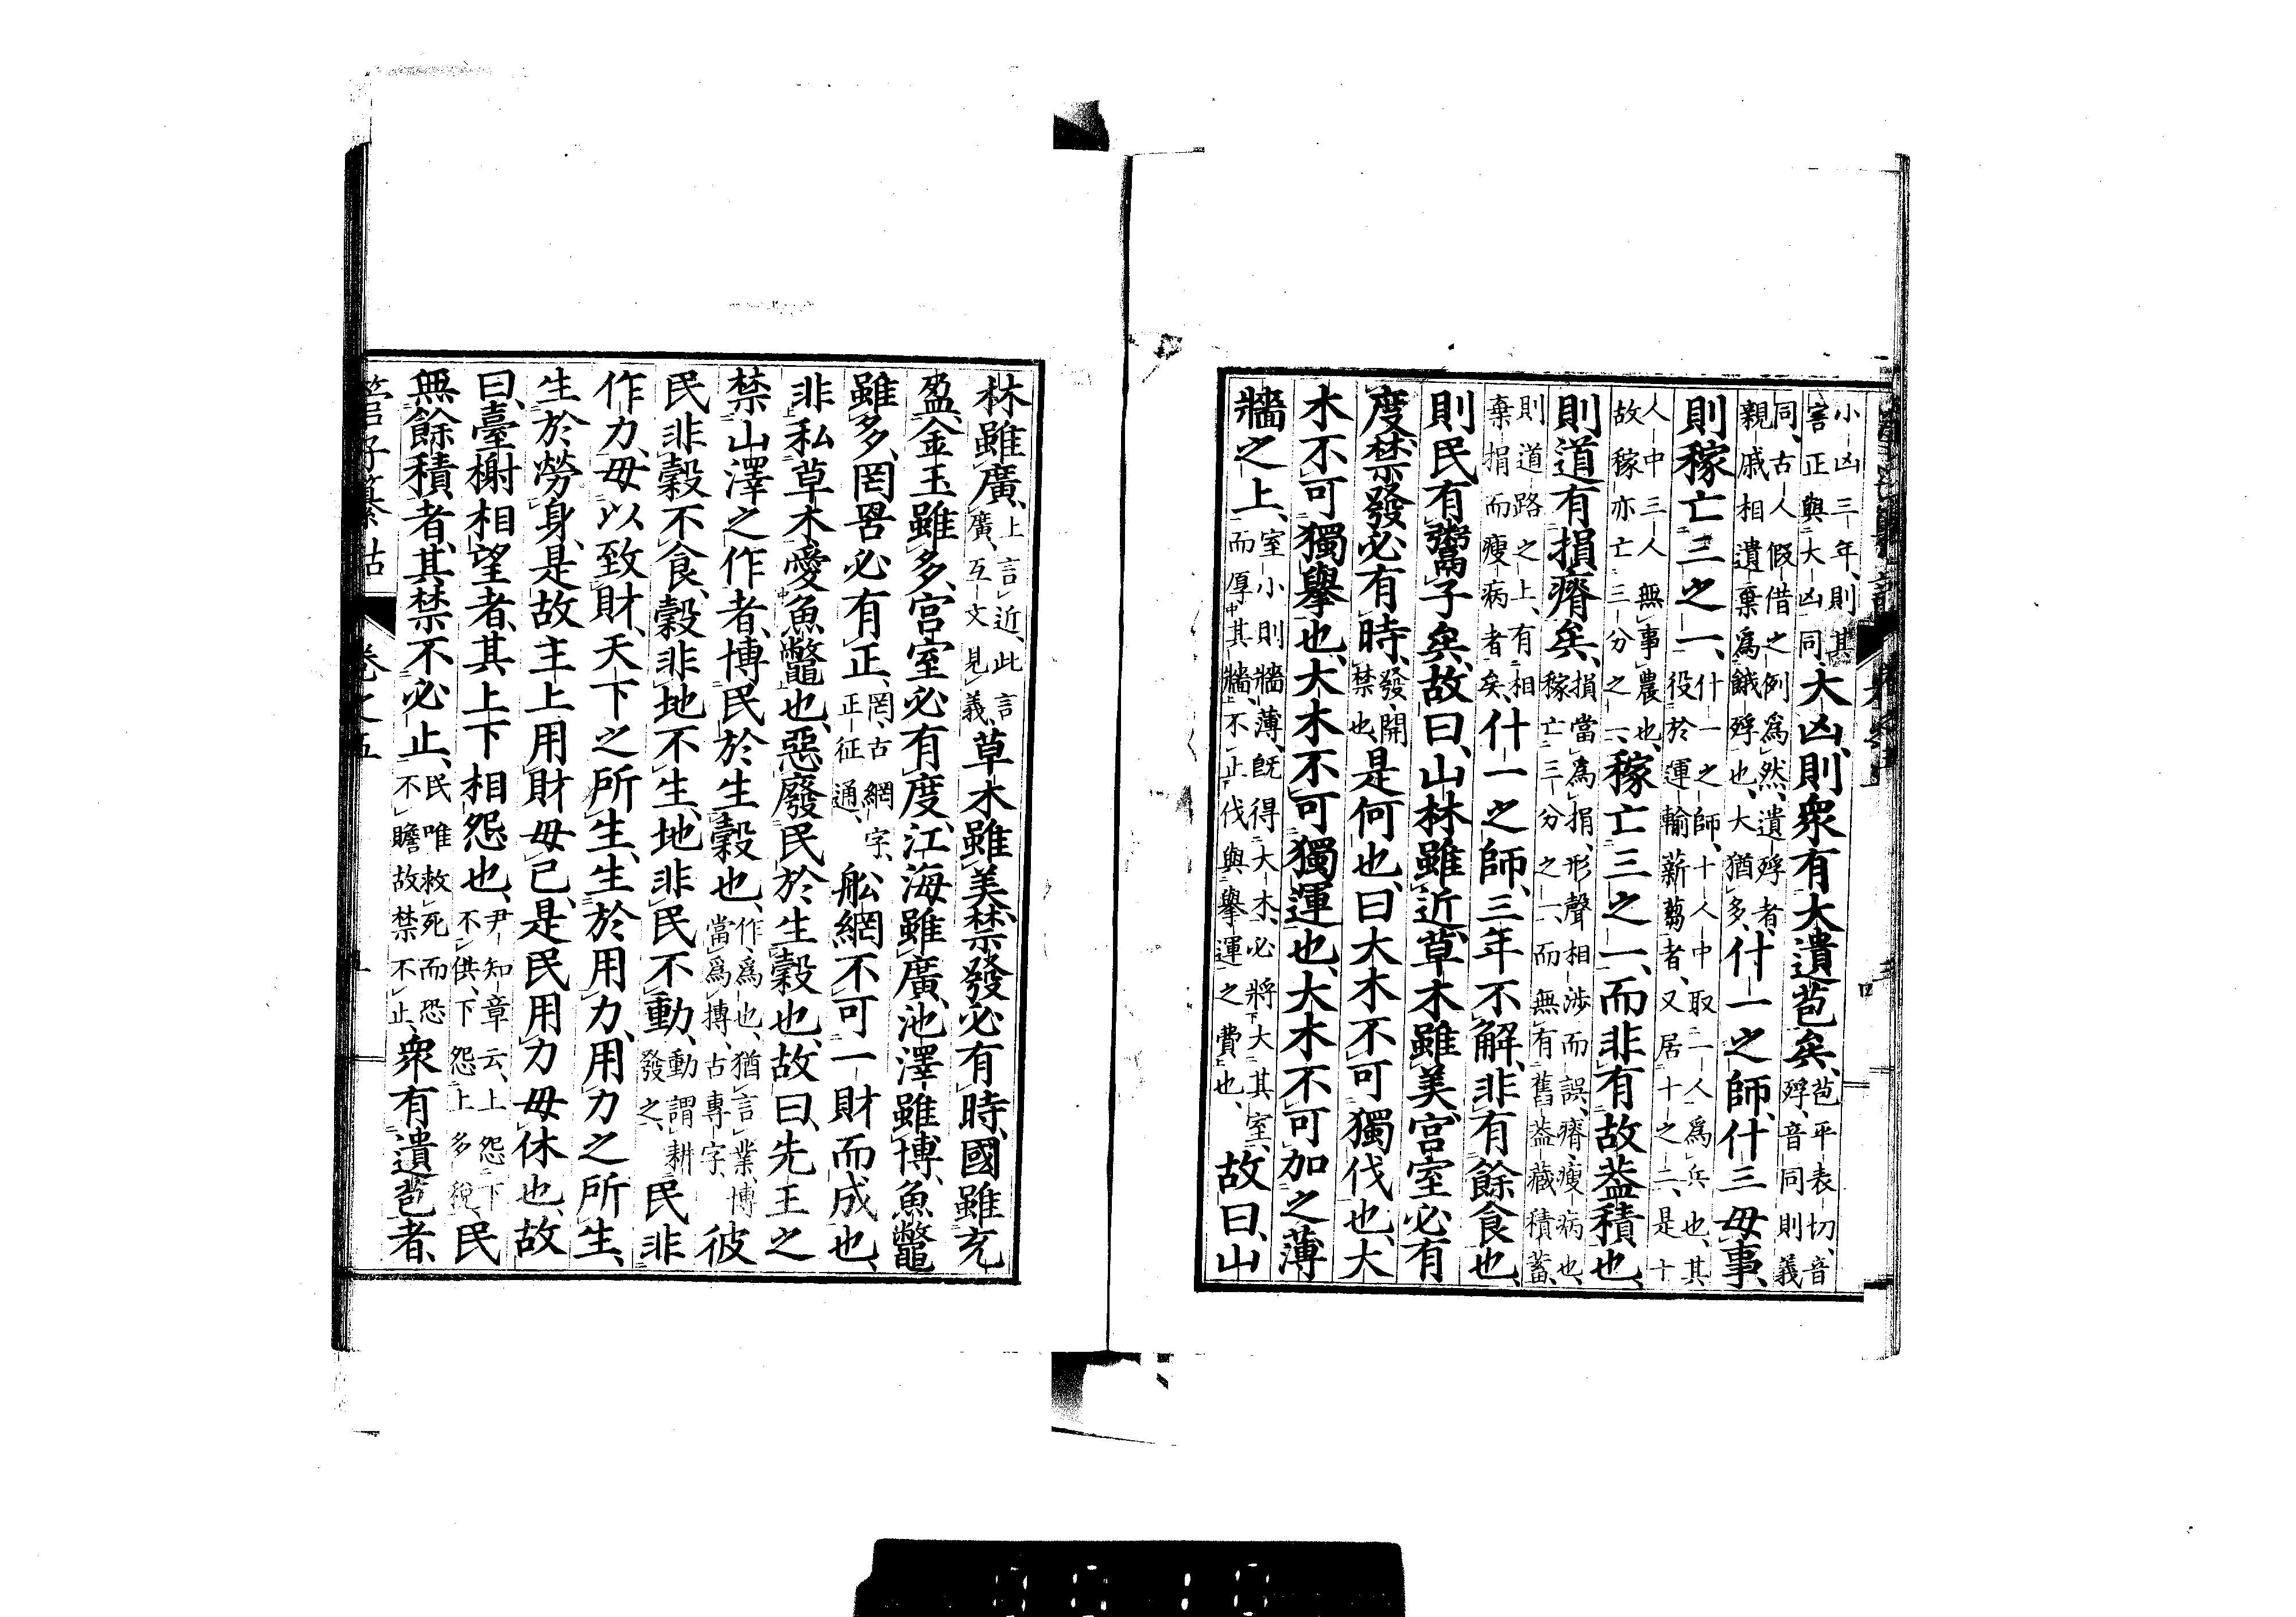 小凶三年、則其
害正與大凶同、大凶、則衆有大遺苞矣、苞平表切、音
殍、音同則義
同、古人假借之例爲然、遺殍者、
親戚相遺棄爲餓殍也、大猶多、什一之師、什三毋事、
則稼亡三之一、什一之師、十人中取二人爲兵也、其
役於運輸薪蒭者、又居十之二、是十
人中三人無事農也、
故稼亦亡三分之一、稼亡三之一、而非有故葢積也、
則道有損瘠矣、損當爲捐、形聲相涉而誤、瘠瘦病也、
稼亡三分之一、而無有舊葢藏積蓄、
則道路之上、有相
棄捐而瘦病者矣、什一之師、三年不解、非有餘食也、
則民有鬻子矣、故曰、山林雖近、草木雖美、宮室必有
度、禁發必有時、發、開
禁也、是何也、曰大木不可獨伐也、大
木不可獨擧也、大木不可獨運也、大木不可加之薄
牆之上、室小則牆薄、旣得大木、必將大其室、
而厚其牆、不止伐與擧運之費也、故曰、山
林雖廣、上言近、此言
廣、互文見義、草木雖美、禁發必有時、國雖充
盈、金玉雖多、宮室必有度、江海雖廣、池澤雖博、魚鼈
雖多、罔罟必有正、罔、古網字、
正征通、船網不可一財而成也、
非私草木愛魚鼈也、惡廢民於生穀也、故曰、先王之
禁山澤之作者、博民於生穀也、作、爲也、猶言業、博
當爲摶、古專字、彼
民非穀不食、穀非地不生、地非民不動、動謂耕
發之、民非
作力、毋以致財、天下之所生、生於用力、用力之所生、
生於勞身、是故主上用財毋已、是民用力毋休也、故
曰、臺榭相望者、其上下相怨也、尹知章云、上怨下
不供、下怨上多稅、民
無餘積者、其禁不必止、民唯救死而恐
不贍故禁不止、衆有遺苞者、
管子纂詁 卷之五